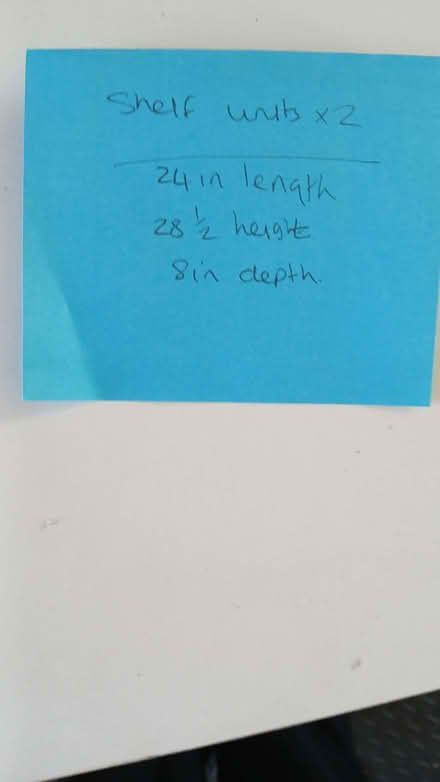 Shelf units x2
24in length
28 1/2 height
8in depth.